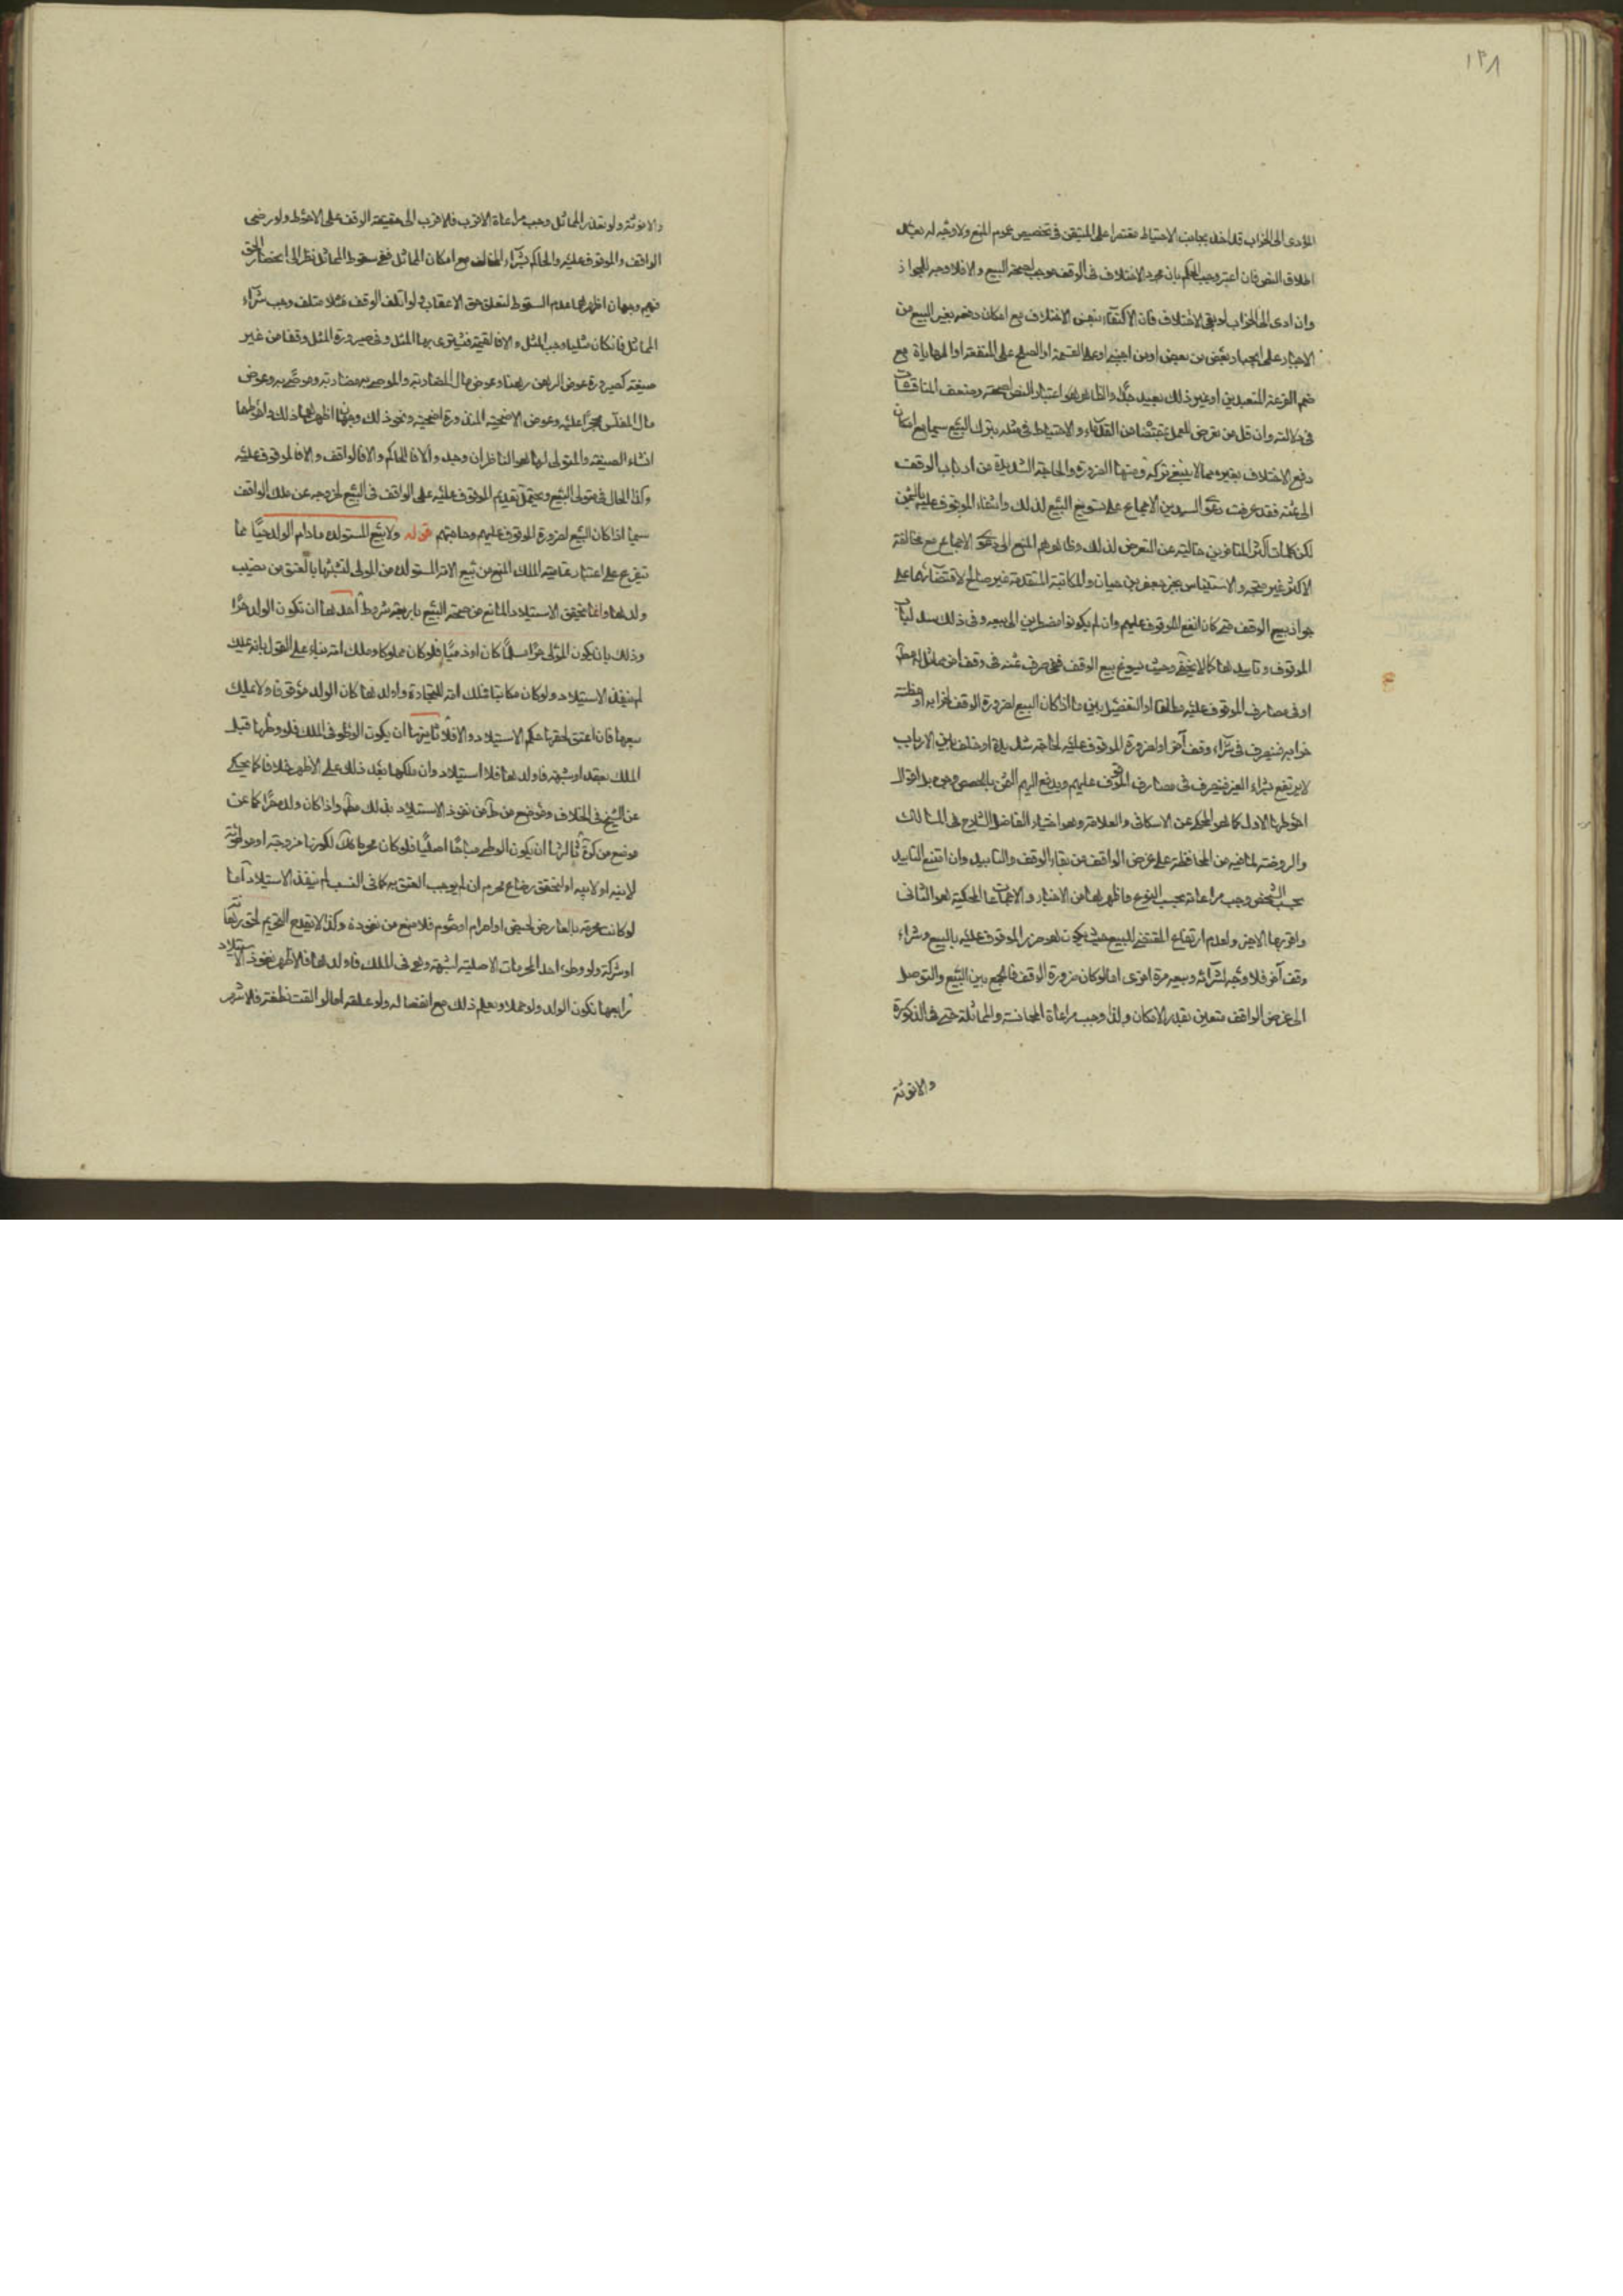 ١٣٨
المؤدى الى الخراب قد اخذ بجانب الاحتياط مقتصرا على المتيقن فى تخصيص عموم المنع ولا وجه له بعد
اطلاق النص فان اعتبر وجب الحكم بان مجرد الاختلاف فى الوقف موجب لصحة البيع والا فلا وجه للجواز
وان ادى الى الخراب لو بقى الاختلاف فان الاكتفاء بنفس الاختلاف مع امكان دفعه بغير البيع من
الاجبار على ايجار بعض من بعض او من اجنبى او على القسمة او الصلح على المنفعة او المهاياة مع
ضم القرعة او غير ذلك بعيد جدا والظاهر هو اعتبار النص لصحته وضعف المناقشات
فى دلالته وان قل من تعرض للعمل بمقتضاه من القدماء والاحتياط فى مثله بترك البيع سيما مع امكان
دفع الاختلاف بغيره مما لا ينبغى تركه ومنها الضرورة والحاجة الشديدة من ارباب الوقف
الى ثمنه فقد عرفت دعوى السيدين الاجماع على تسويغ البيع لذلك وانتفاء الموقوف عليه بالثمن
لكن كلمات اكثر المتاخرين خالية عن التعرض لذلك وظاهرهم المنع الى دعوى الاجماع مع مخالفة
الاكثر غير متجه والاستيناس بخبر جعفر بن حيان والمكاتبة المتقدمة غير صالح لاقتضائهما على
جواز بيع الوقف متى كان انفع للموقوف عليهم وان لم يكونوا مضطرين الى بيعه وفى ذلك سد لباب
الوقوف وتابيدها كما لا يخفى وحيث يسوغ بيع الوقف ففى صرف ثمنه فى وقف اخر مماثل له مطلقا
او فى مصارف الموقوف عليه مطلقا او التفصيل بين ما اذا كان البيع لضرورة الوقف لخرابه او مظنته
خرابه فيصرف فى شراء وقف آخر او لضرورة الموقوف عليه لحاجة شديدة او خلف بين الارباب
لا يرتفع بشراء الغير فيصرف فى مصارف الموقوف عليهم ويدفع اليهم الثمن بالحصص وجوه بل اقوال
احوطها الاول كما هو المحكى عن الاسكافى والعلامة وهو اختيار الفاضل الشارح فى المسالك
والروضة لما فيه من المحافظة على غرض الواقف من بقاء الوقف والتابيد وان امتنع التابيد
بحسب الشخص وجب مراعاته بحسب النوع وظاهر ما من الاخبار والاجماعات المحكية هو الثانى
واقربها الاخير ولعدم ارتفاع المقتضى للبيع حيث يكون هو ضرر الموقوف عليه بالبيع وشراء
وقف آخر فلا وجه لشرائه وبيعه مرة اخرى اما لو كان ضرورة الوقف فالجمع بين البيع والتوصل
الى غرض الواقف متعين بقدر الامكان ولذا وجب مراعاة المجانسة والمماثلة حتى فى الذكورة
والانوثة
والانوثة ولو تعذر المماثل وجب مراعاة الاقرب فالاقرب الى حقيقة الوقف على الاحوط ولو رضى
الواقف والموقوف عليه والحاكم بشراء المخالف مع امكان المماثل ففى سقوط المماثل نظر الى انحصار الحق
فيهم وجهان اظهرهما عدم السقوط لتعلق حق الاعقاب ولو اتلف الوقف مثلا متلف وجب شراء
المماثل فان كان مثليا وجب المثل والا فالقيمة فيشترى بها المثل وفى صيرورة المثل وقفا من غير
صيغة كصيرورة عوض الرهن رهنا وعوض مال المضاربة والموصى به مضاربة وموصى به وعوض
مال المفلس محجرا عليه وعوض الاضحية المنذورة اضحية ونحو ذلك وجهان اظهرهما ذلك واحوطهما
انشاء الصيغة والمتولى لها هو الناظر ان وجد والا فالحاكم والا فالواقف والا فالموقوف عليه
وكذا الحال فى متولى البيع ويحتمل تقديم الموقوف عليه على الواقف فى البيع لخروجه عن ملك الواقف
سيما اذا كان البيع لضرورة الموقوف عليهم وحاجتهم قوله ولا بيع المستولدة ما دام الولد حيا مما
تفرع على اعتبار تمامية الملك المنع من بيع الامة المستولدة من المولى لتشبثها بالعتق من نصيب
ولدها وانما يتحقق الاستيلاد المانع من صحة البيع باربعة شروط احدها ان يكون الولد حرا
وذلك بان يكون المولى حرا مسلما كان او ذميا فلو كان مملوكا وملك امة بناء على القول بانه يملك
لم ينفذ الاستيلاد ولو كان مكاتبا فملك امة للتجارة واولدها كان الولد موقوفا ولا يملك
بيعها فان اعتق لحقها حكم الاستيلاد والا فلا ثانيها ان يكون الوطى فى الملك فلو وطئها قبل
الملك بعقد او شبهة فاولدها فلا استيلاد وان ملكها بعد ذلك على الاظهر خلافا لما يحكى
عن الشيخ فى الخلاف وموضع من ط من نفوذ الاستيلاد بذلك مطلقا واذا كان ولده حرا كما عن
موضع من ثالثها ان يكون الوطى مباحا اصليا فلو كان محرما كذلك لكونها مزوجة او موطوئة
لابنه او لابيه او لتحقق رضاع محرم ان لم يوجب العتق به كما فى النسب لم ينفذ الاستيلاد اما
لو كانت محرمة بالعارض لحيض او احرام او صوم فلا منع من نفوذه وكذا لا يقدح التحريم لحق
او شركة ولو وطى احد المحرمات الاصلية لشبهة وهى فى الملك فاولدها فالاظهر نفوذ الاستيلاد
رابعها تكون الولد ولو حملا ويعلم ذلك مع انفصاله ولو علقة اما لو القت نطفة فالاشهر